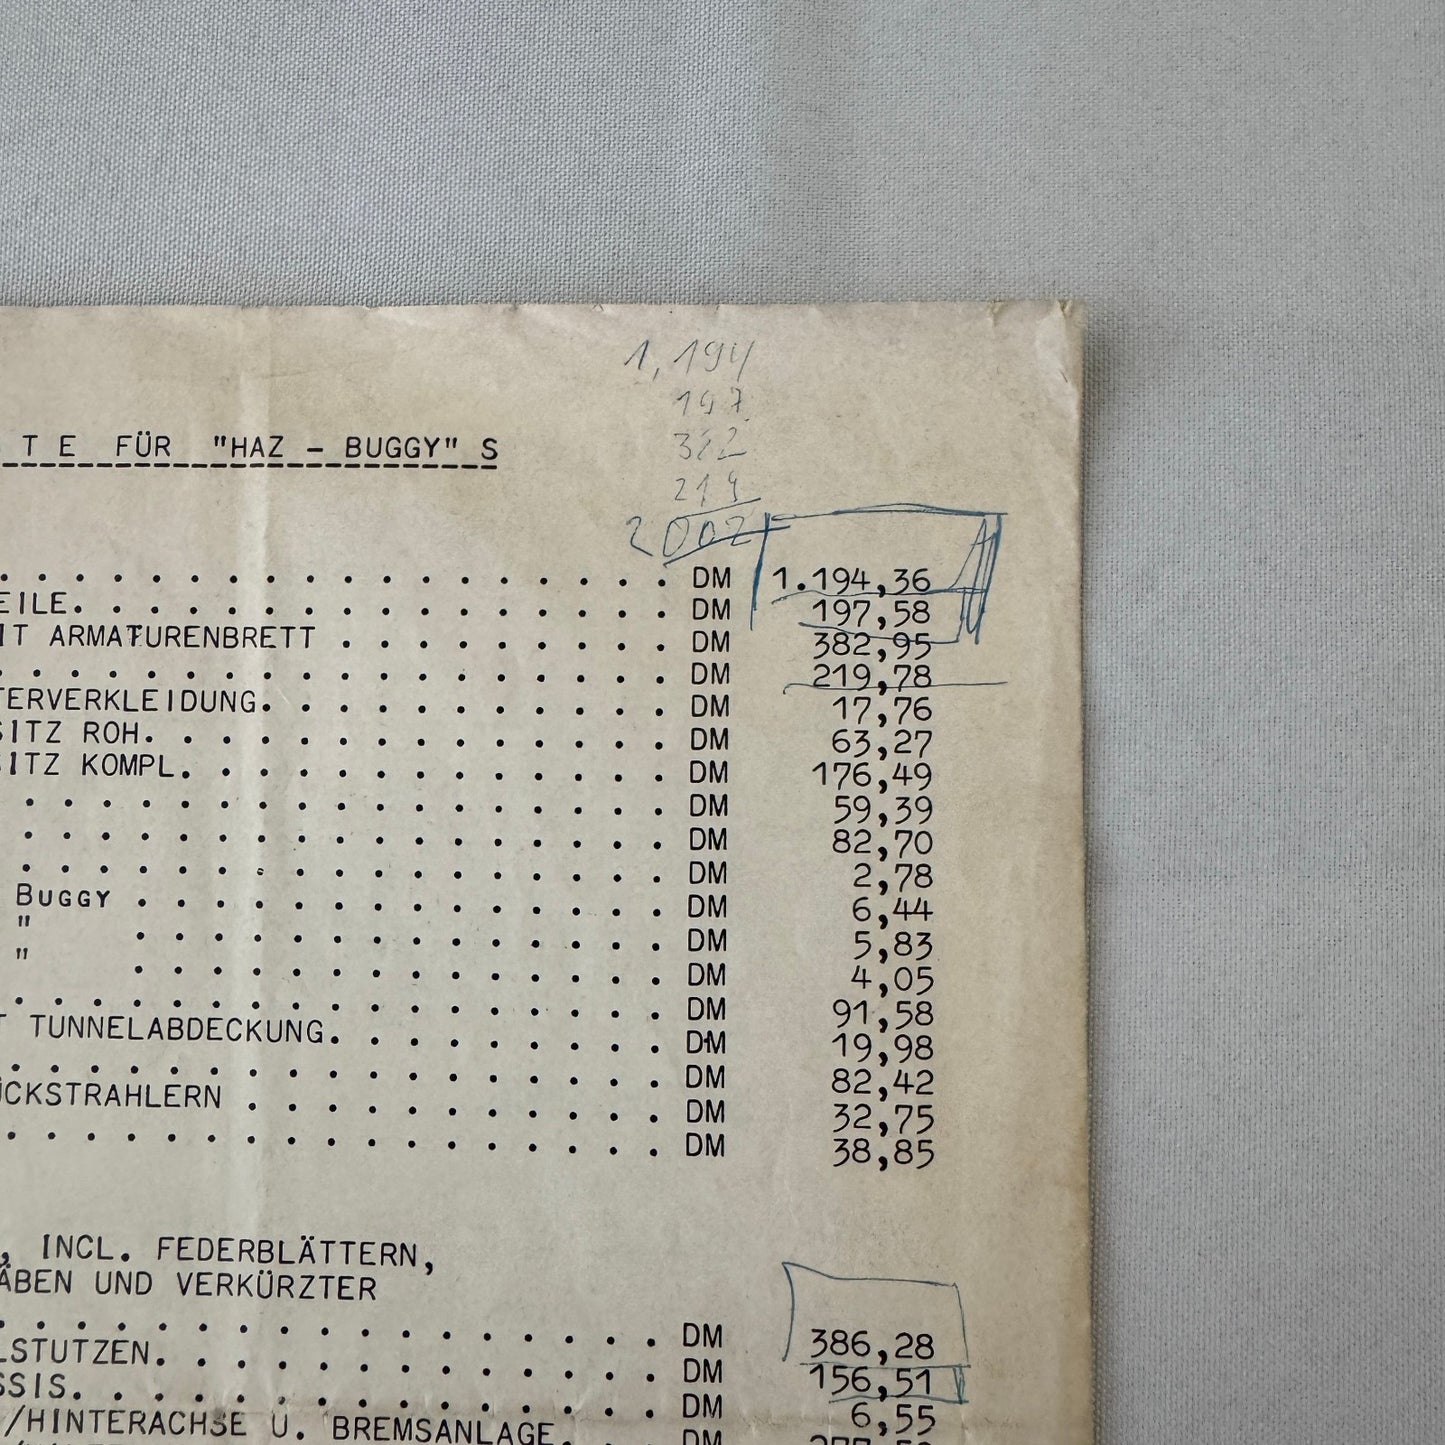 1,194
197
382
219
2002
T E FÜR "HAZ - BUGGY" S
. . . . . . . . . . . . . . . . . . DM 1.194,36
EILE. . . . . . . . . . . . . . . . DM 197,58
IT ARMATURENBRETT . . . . . . . . . DM 382,95
. . . . . . . . . . . . . . . . . . DM 219,78
TERVERKLEIDUNG. . . . . . . . . . . DM 17,76
SITZ ROH. . . . . . . . . . . . . . DM 63,27
SITZ KOMPL. . . . . . . . . . . . . DM 176,49
. . . . . . . . . . . . . . . . . DM 59,39
. . . . . . . . . . . . . . . . . DM 82,70
. . . . . . . . . . . . . . . . . DM 2,78
BUGGY . . . . . . . . . . . . . . DM 6,44
" . . . . . . . . . . . . . . DM 5,83
" . . . . . . . . . . . . . . DM 4,05
. . . . . . . . . . . . . . . . . DM 91,58
T TUNNELABDECKUNG. . . . . . . . . DM 19,98
. . . . . . . . . . . . . . . . . DM 82,42
ÜCKSTRAHLERN . . . . . . . . . . . DM 32,75
. . . . . . . . . . . . . . . . . DM 38,85
, INCL. FEDERBLÄTTERN,
ÄBEN UND VERKÜRZTER
. . . . . . . . . . . . . . . . . DM 386,28
LSTUTZEN. . . . . . . . . . . . . DM 156,51
SSIS. . . . . . . . . . . . . . . DM 6,55
/HINTERACHSE U. BREMSANLAGE. . . DM